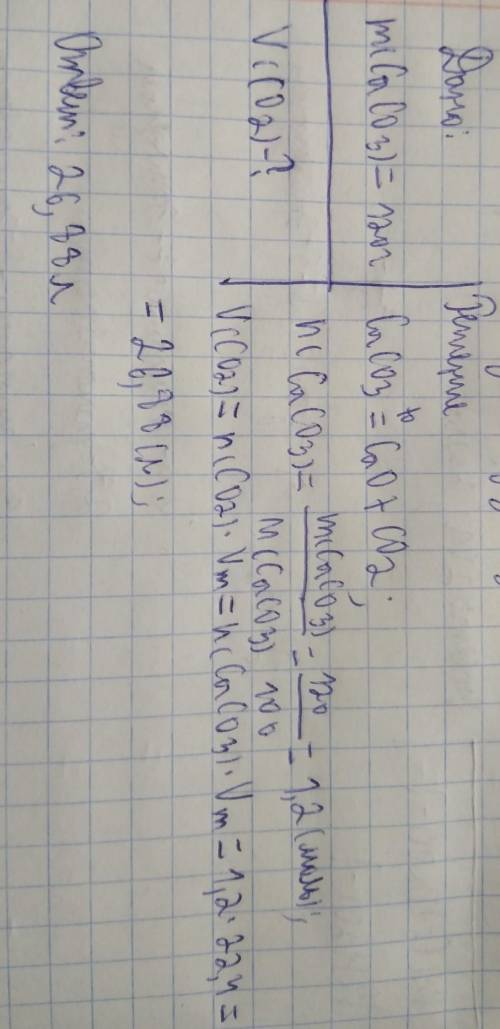 Дано:
m(CaCO3)=120г
V(CO2)-?
Решение
CaCO3 =t° CaO + CO2.
n(CaCO3)= m(CaCO3)/M(CaCO3) = 120/100 = 1,2 (моль);
V(CO2)=n(CO2)·Vm=n(CaCO3)·Vm=1,2·22,4=
=26,88(л);
Ответ: 26,88л